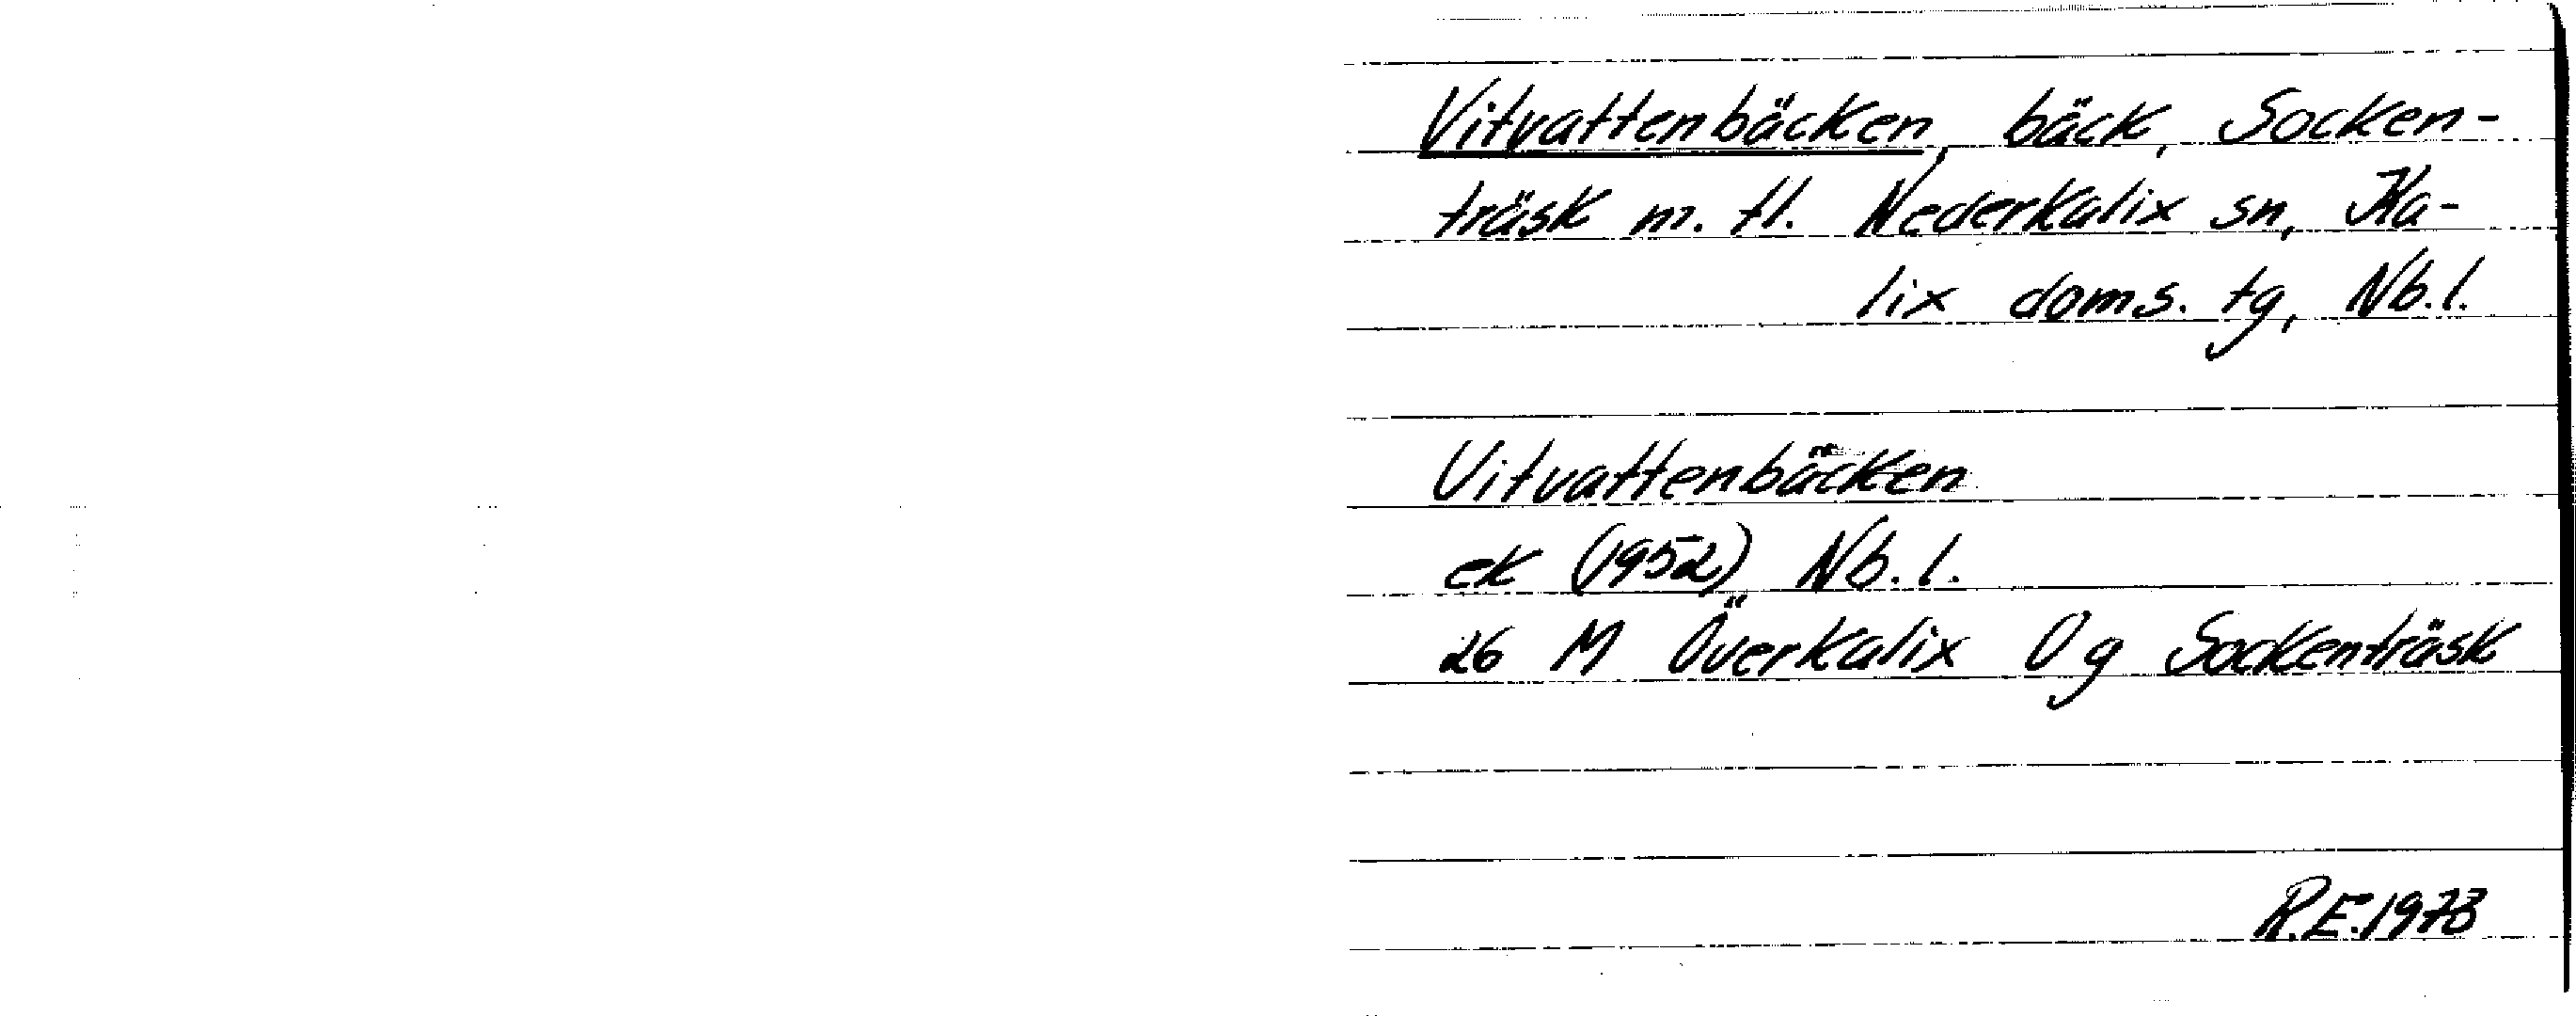 Vitvattenbäcken, bäck, Socken-
träsk m. fl. Nederkalix sn, Ka-
lix doms. tg, Nb.l.
Vitvattenbäcken
ek (1952) Nb.l.
26 M Överkalix Og Sockenträsk
R.E.1973